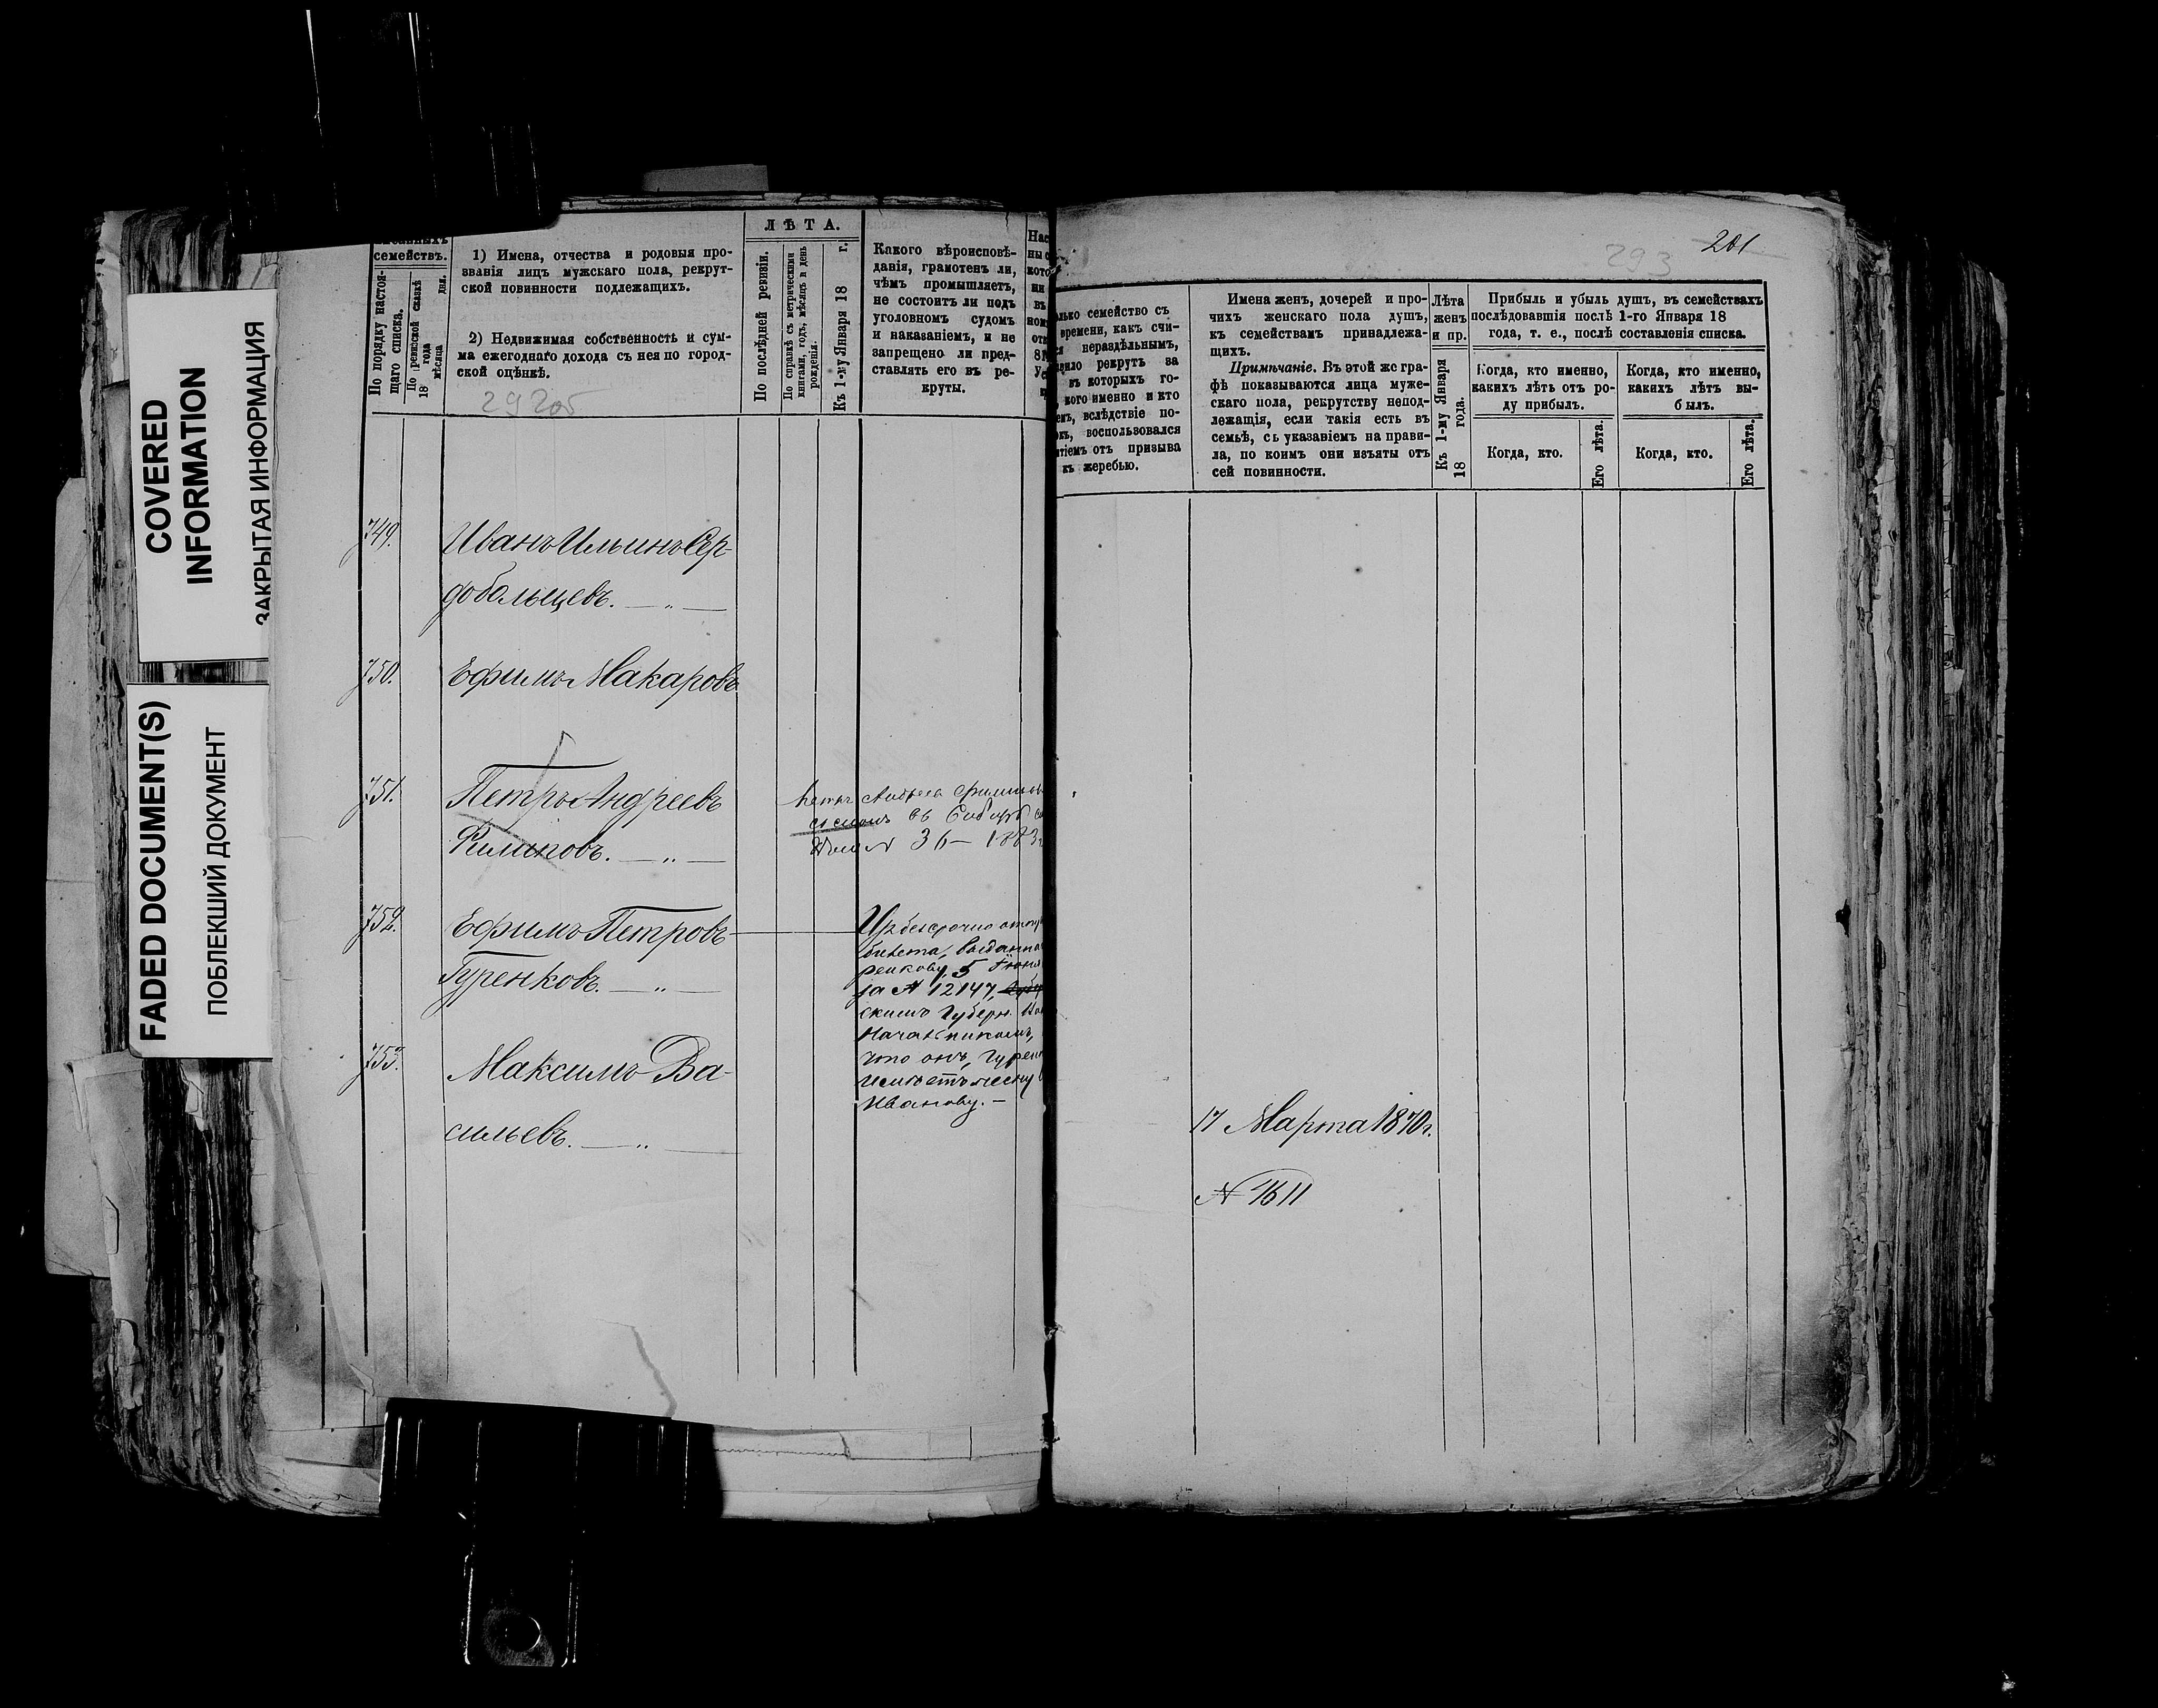 COVERED
INFORMATION
ЗАКРЫТАЯ ИНФОРМАЦИЯ
FADED DOCUMENT(S)
ПОБЛЕКШИЙ ДОКУМЕНТ
семействъ.
По порядку настоя-
щаго списка.
По ревизской сказкѣ
18 года
мѣсяца дня.
1) Имена, отчества и родовыя про-
званія лицъ мужскаго пола, рекрут-
ской повинности подлежащихъ.
2) Недвижимая собственность и сум-
ма ежегоднаго дохода съ нея по город-
ской оцѣнкѣ.
292об
ЛѢТА.
По послѣдней ревизіи.
По справкѣ съ метрическими
книгами, годъ, мѣсяцъ и день
рожденія.
Къ 1-му Января 18 г.
Какого вѣроисповѣ-
данія, грамотенъ ли,
чѣмъ промышляетъ,
не состоитъ ли подъ
уголовномъ судомъ
и наказаніемъ, и не
запрещено ли пред-
ставлять его въ ре-
круты.
749.
Иванъ Ильинъ Сер-
добольцевъ. — „ —
750.
Ефимъ Макаровъ
751.
Петръ Андреевъ
Филиповъ. — „ —
въ
N 36 — 1883
752.
Ефимъ Петровъ
Гуренковъ. — „ —
билета,
5
за № 12147,
скимъ Губерн.
Начальникомъ,
что онъ,
Иванову. —
753.
Максимъ Ва-
сильевъ. — „ —
293
201
семейство съ
времени, какъ счи-
нераздѣльнымъ,
рекрутъ за
въ которыхъ го-
кого именно и кто
вслѣдствіе по-
воспользовался
отъ призыва
къ жеребью.
Имена женъ, дочерей и про-
чихъ женскаго пола душъ,
къ семействамъ принадлежа-
щихъ.
Примѣчаніе. Въ этой же гра-
фѣ показываются лица муже-
скаго пола, рекрутству непод-
лежащія, если такія есть въ
семьѣ, съ указаніемъ на прави-
ла, по коимъ они изъяты отъ
сей повинности.
Лѣта
женъ
и пр.
Къ 1-му Января
18 года.
Прибыль и убыль душъ, въ семействахъ
послѣдовавшія послѣ 1-го Января 18
года, т. е., послѣ составленія списка.
Когда, кто именно,
какихъ лѣтъ отъ ро-
ду прибылъ.
Когда, кто именно,
какихъ лѣтъ вы-
былъ.
Когда, кто.
Его лѣта.
Когда, кто.
Его лѣта.
17 Марта 1870 г.
N 1611